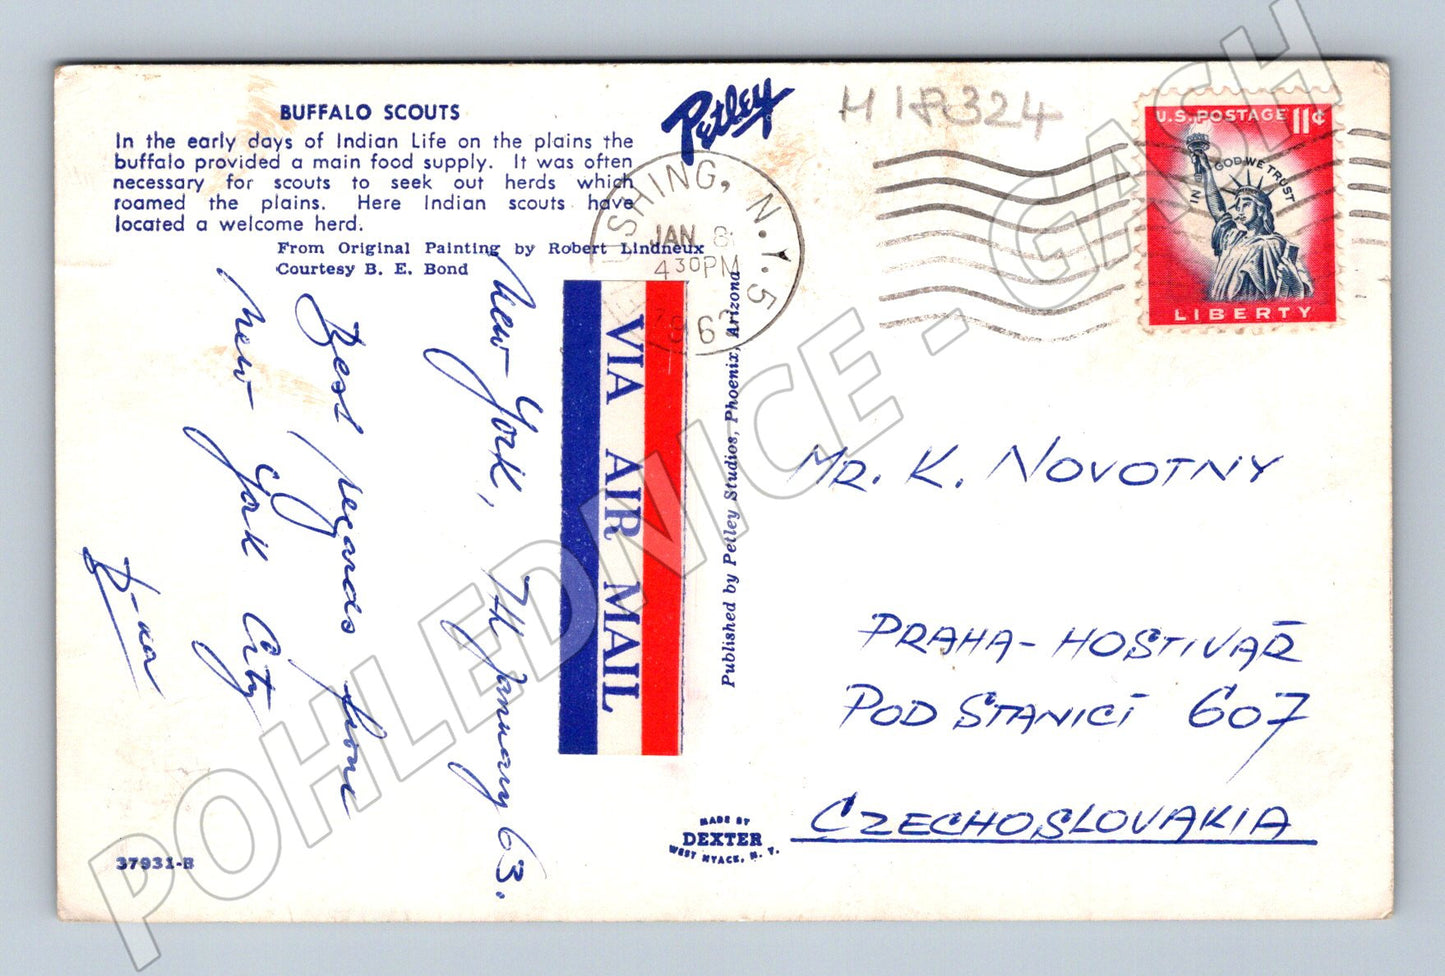 BUFFALO SCOUTS
In the early days of Indian Life on the plains the
buffalo provided a main food supply. It was often
necessary for scouts to seek out herds which
roamed the plains. Here Indian scouts have
located a welcome herd.
From Original Painting by Robert Lindneux
Courtesy B. E. Bond
Petley
USHING, N.Y. 5
JAN 8
4 30 PM
196
U.S. POSTAGE 11¢
IN GOD WE TRUST
LIBERTY
New York, 7th January 63.
Best regards from
New York City
VIA AIR MAIL
Published by Petley Studios, Phoenix, Arizona
MR. K. NOVOTNY
PRAHA-HOSTIVAŘ
POD STANICÍ 607
CZECHOSLOVAKIA
MADE BY
DEXTER
WEST NYACK, N. Y.
37931-B
POHLEDNICE - GASH